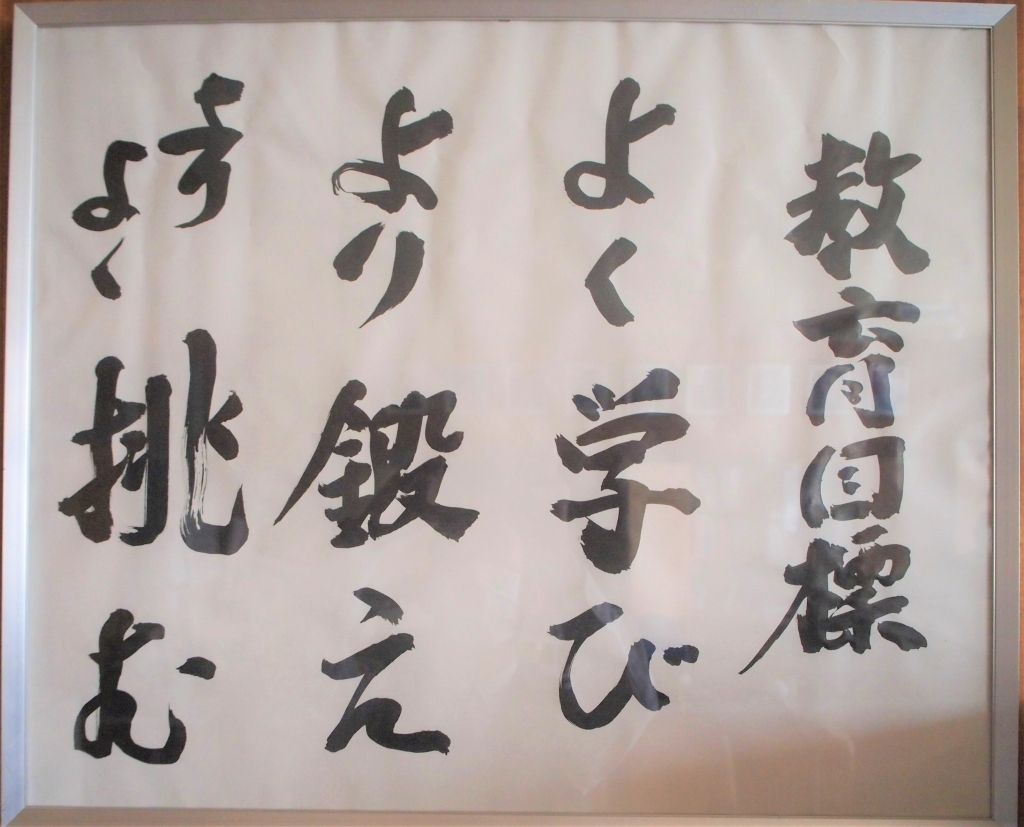 教育目標
よく学び
より鍛え
よく挑む